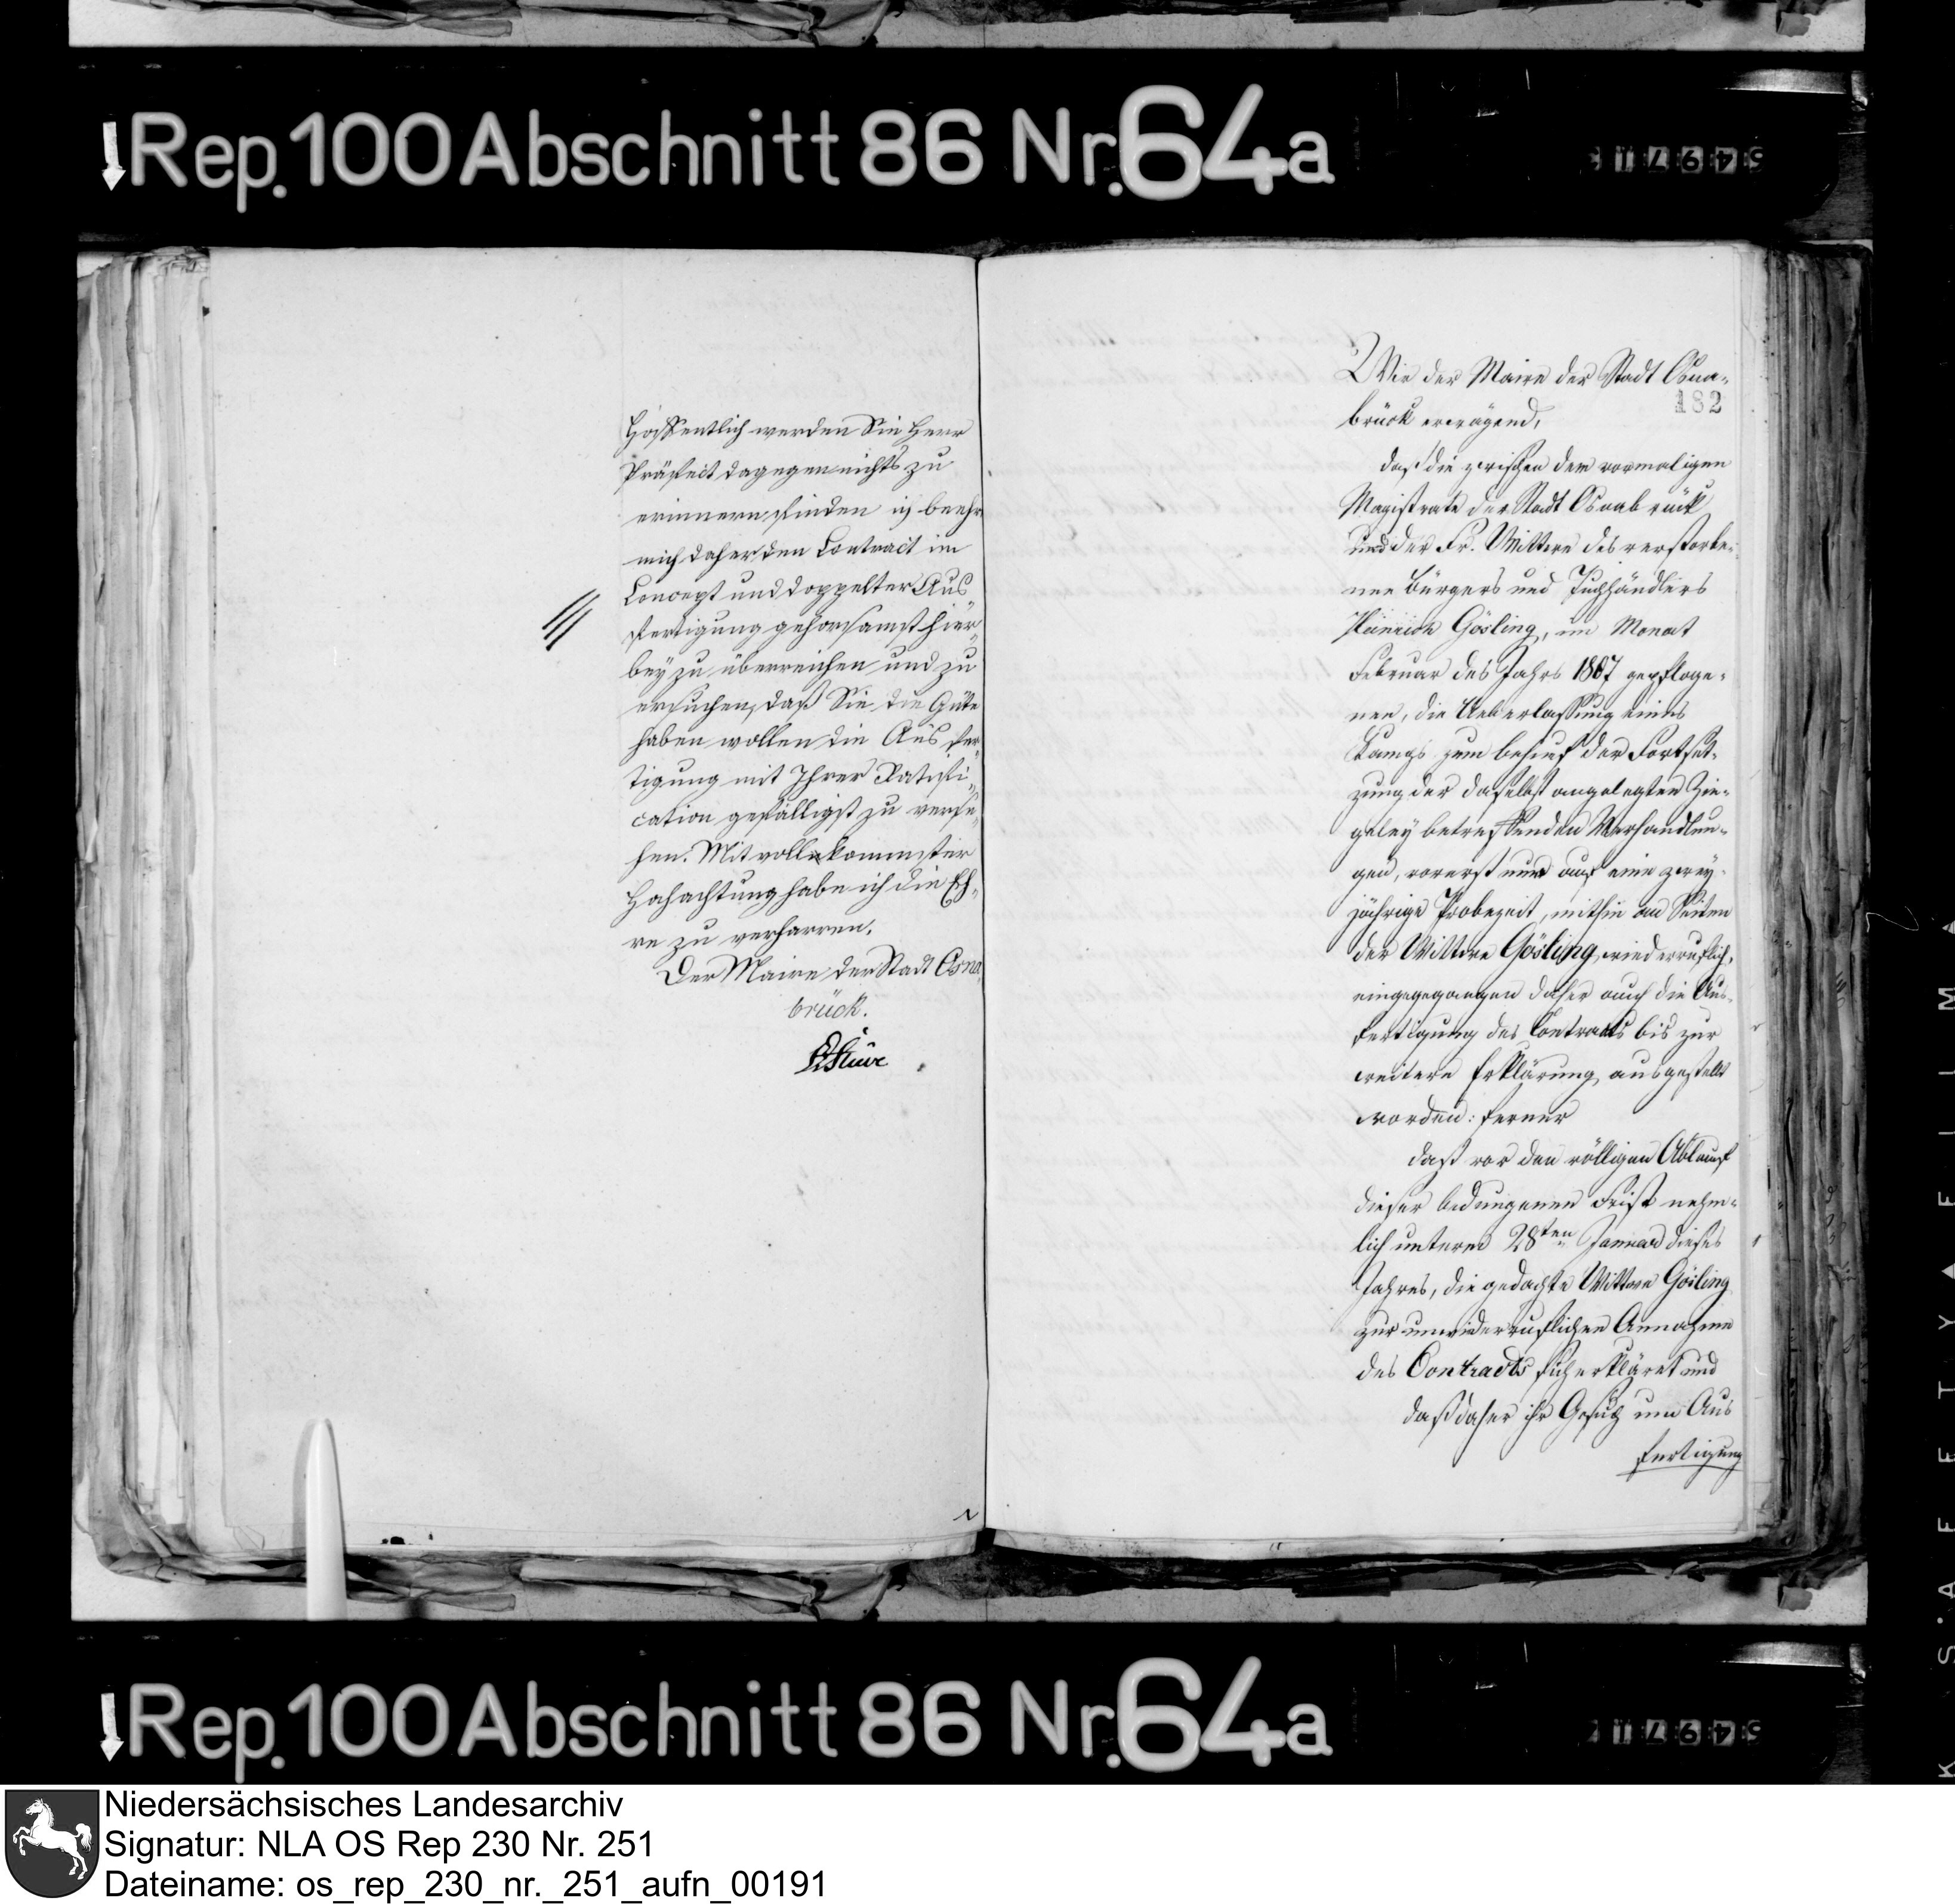 Rep. 100 Abschnitt 86 Nr. 64a
Hoffentlich werden Sie Herr
Präfect dagegen nichts zu
erinnern finden ich beehre
mich daher den Contract im
Concept und doppelter Aus¬
fertigung gehorsamst hier¬
bey zu überreichen und zu
ersuchen, daß Sie die Güte
haben wollen die Ausfer¬
tigung mit Ihrer Ratifi¬
cation gefälligst zu verse¬
hen. Mit vollkommenster
Hochachtung habe ich die Eh¬
re zu verharren.
Der Maire der Stadt Osna
brück.
Stüve
182
Wir der Maire der Stadt Osna¬
brück erwägend,
daß die zwischen dem vormaligen
Magistrate der Stadt Osnabrück
und der Fr. Wittwe des verstorbe¬
nen Bürgers und Tuchhändlers
Heinrich Gösling, im Monat
Februar des Jahrs 1807 gepfloge¬
nen, die Ueberlassung eines
Kamps zum behuf der Fortset¬
zung der daselbst angelegten Zie¬
geley betreffenden Verhandlun¬
gen, vorerst nur auf eine zwey¬
jährige Probezeit, mithin an Seiten
der Wittwe Gösling, wiederruflich,
eingegangen daher auch die Aus¬
fertigung des Contracts bis zur
weitere Erklärung ausgestellt
worden: ferner
daß vor den völligen Ablauf
dieser bedungenen Frist nehm¬
lich unterm 28ten Januar dieses
Jahres, die gedachte Wittwe Gösling
zur unwiderruflichen Annahme
des Contracts sich erkläret und
daß daher ihr Gesuch um Aus
fertigung
Rep. 100 Abschnitt 86 Nr. 64a
Niedersächsisches Landesarchiv
Signatur: NLA OS Rep 230 Nr. 251
Dateiname: os_rep_230_nr._251_aufn_00191